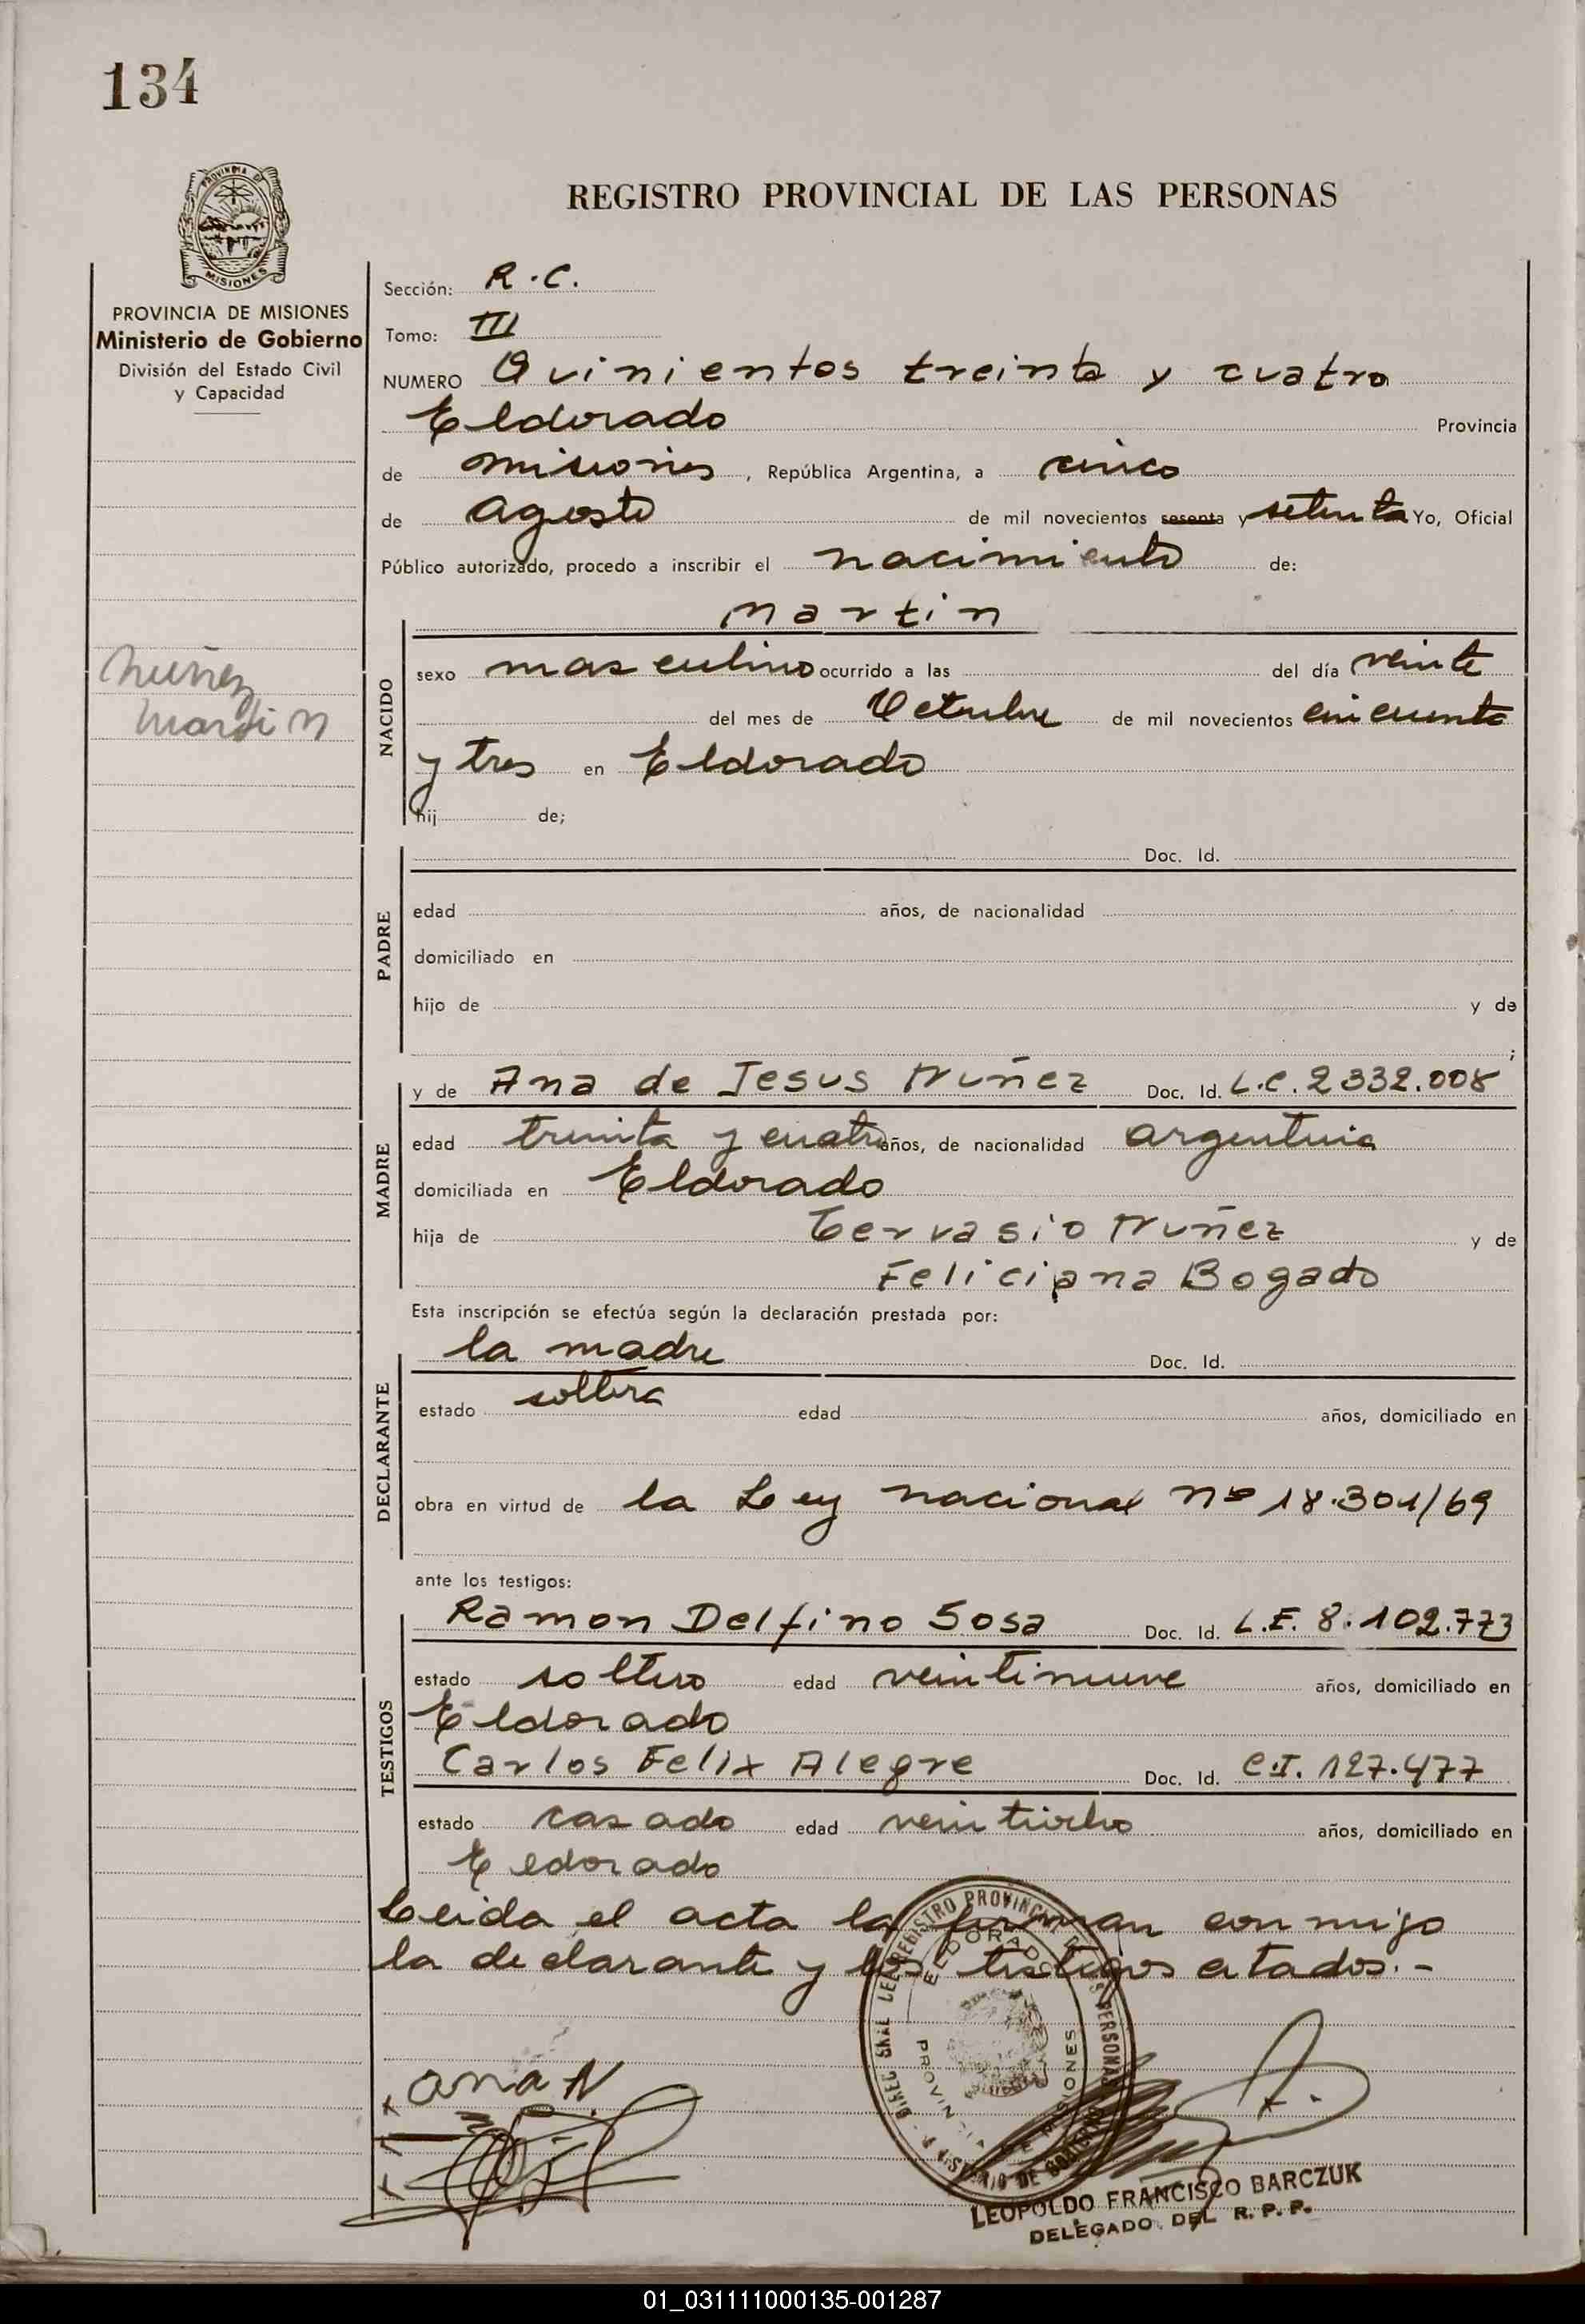 134
PROVINCIA DE
MISIONES
REGISTRO PROVINCIAL DE LAS PERSONAS
PROVINCIA DE MISIONES
Ministerio de Gobierno
División del Estado Civil
y Capacidad
Nuñez
Martin
Sección: R.C.
Tomo: III
NUMERO Quinientos treinta y cuatro
Eldorado Provincia
de misiones, República Argentina, a cinco
de agosto de mil novecientos sesenta y setenta Yo, Oficial
Público autorizado, procedo a inscribir el nacimiento de:
NACIDO
Martin
sexo masculino ocurrido a las del día veinte
del mes de Octubre de mil novecientos cincuenta
y tres en Eldorado
hij de;
PADRE
Doc. Id.
edad años, de nacionalidad
domiciliado en
hijo de y de
;
MADRE
y de Ana de Jesus Nuñez Doc. Id. L.C. 2332.008
edad treinta y cuatro años, de nacionalidad argentina
domiciliada en Eldorado
hija de Gervasio Nuñez y de
Feliciana Bogado
Esta inscripción se efectúa según la declaración prestada por:
DECLARANTE
la madre Doc. Id.
estado soltera edad años, domiciliado en
obra en virtud de la Ley nacional nº 18.301/69
ante los testigos:
TESTIGOS
Ramon Delfino Sosa Doc. Id. L.E. 8.102.773
estado soltero edad veintinueve años, domiciliado en
Eldorado
Carlos Felix Alegre Doc. Id. C.I. 127.477
estado casado edad veintiocho años, domiciliado en
Eldorado
Leida el acta la firman conmigo
la declarante y los testigos citados.-
REGISTRO PROVINCIAL DE LAS PERSONAS
ELDORADO
PROVINCIA DE MISIONES
MINISTERIO DE GOBIERNO
ana N
LEOPOLDO FRANCISCO BARCZUK
DELEGADO DEL R. P. P.
01_031111000135-001287